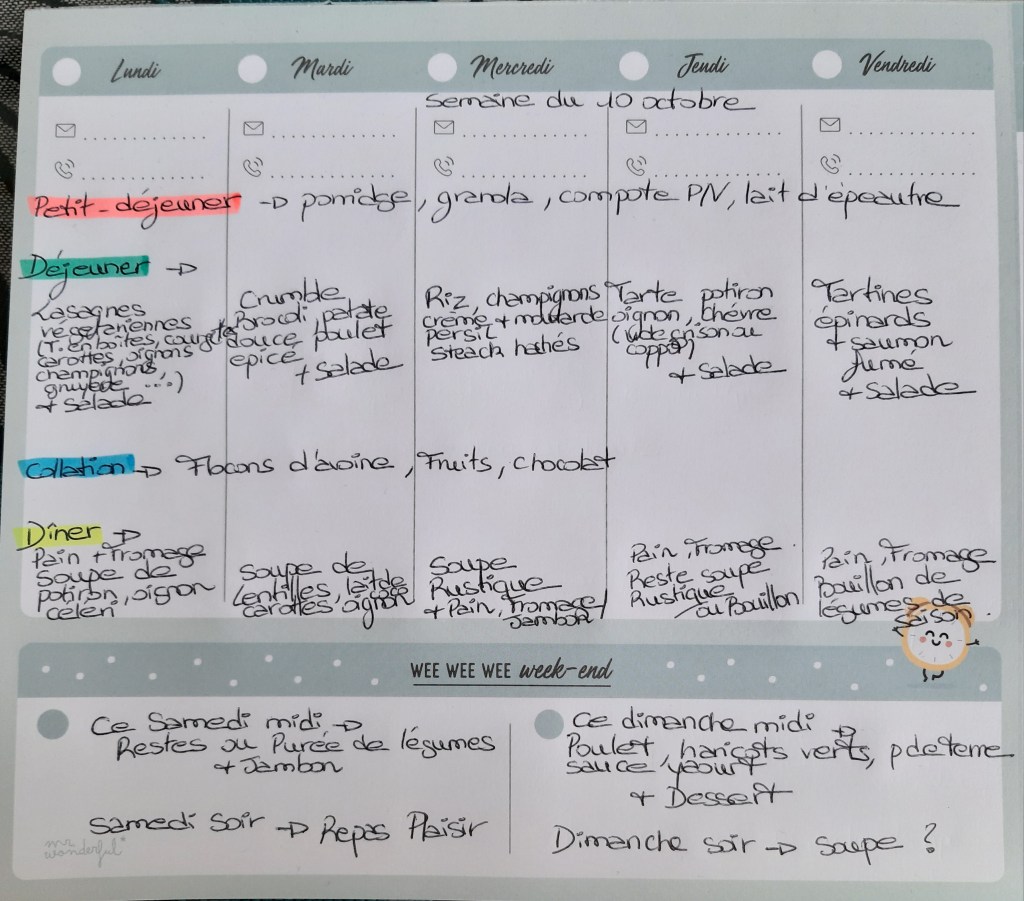 Lundi
Mardi
Mercredi
Jeudi
Vendredi
Semaine du 10 octobre
Petit-déjeuner → porridge, granola, compote P/N, lait d'épeautre
Déjeuner →
Lasagnes
végétariennes
(T. en boîtes, courgette
carottes, oignons
champignons
gruyère ...)
+ Salade
Crumble
Brocoli patate
douce, poulet
épicé
+ Salade
Riz, champignons
crème + moutarde
persil
steack hachés
Tarte potiron
oignon, chèvre
coppa)
+ Salade
Tartines
épinards
+ saumon
fumé
+ Salade
Collation → Flocons d'avoine, Fruits, chocolat
Dîner →
Pain + Fromage
Soupe de
potiron, oignon
céleri
Soupe de
Lentilles, lait de
carottes, oignon
Soupe
Rustique
+ Pain, fromage/
Jambon
Pain, Fromage
Reste soupe
Rustique
/ou Bouillon
Pain, Fromage
Bouillon de
légumes de
saison.
WEE WEE WEE week-end
Ce Samedi midi →
Restes ou Purée de légumes
+ Jambon
Samedi soir → Repas Plaisir
Ce dimanche midi →
Poulet, haricots verts, p de terre
sauce yaourt
+ Dessert
Dimanche soir → soupe ?
mr.
wonderful*